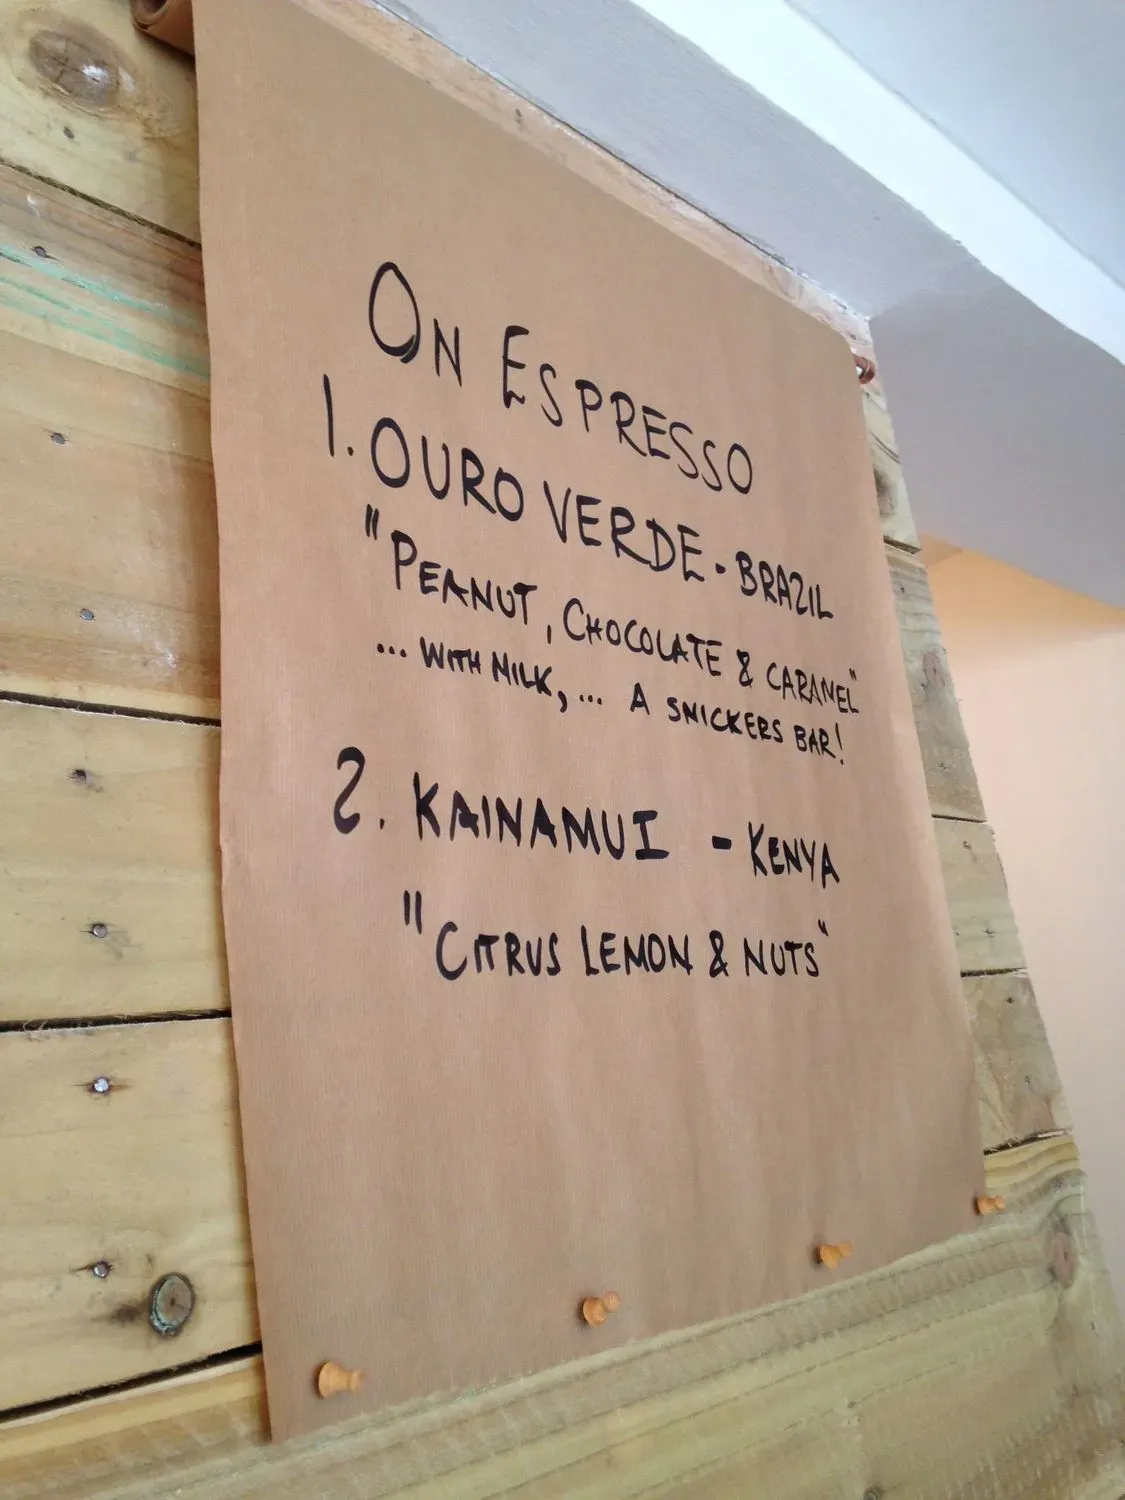 ON ESPRESSO
1. OURO VERDE - BRAZIL
"PEANUT, CHOCOLATE & CARAMEL"
... WITH MILK, ... A SNICKERS BAR!
2. KAINAMUI - KENYA
"CITRUS LEMON & NUTS"